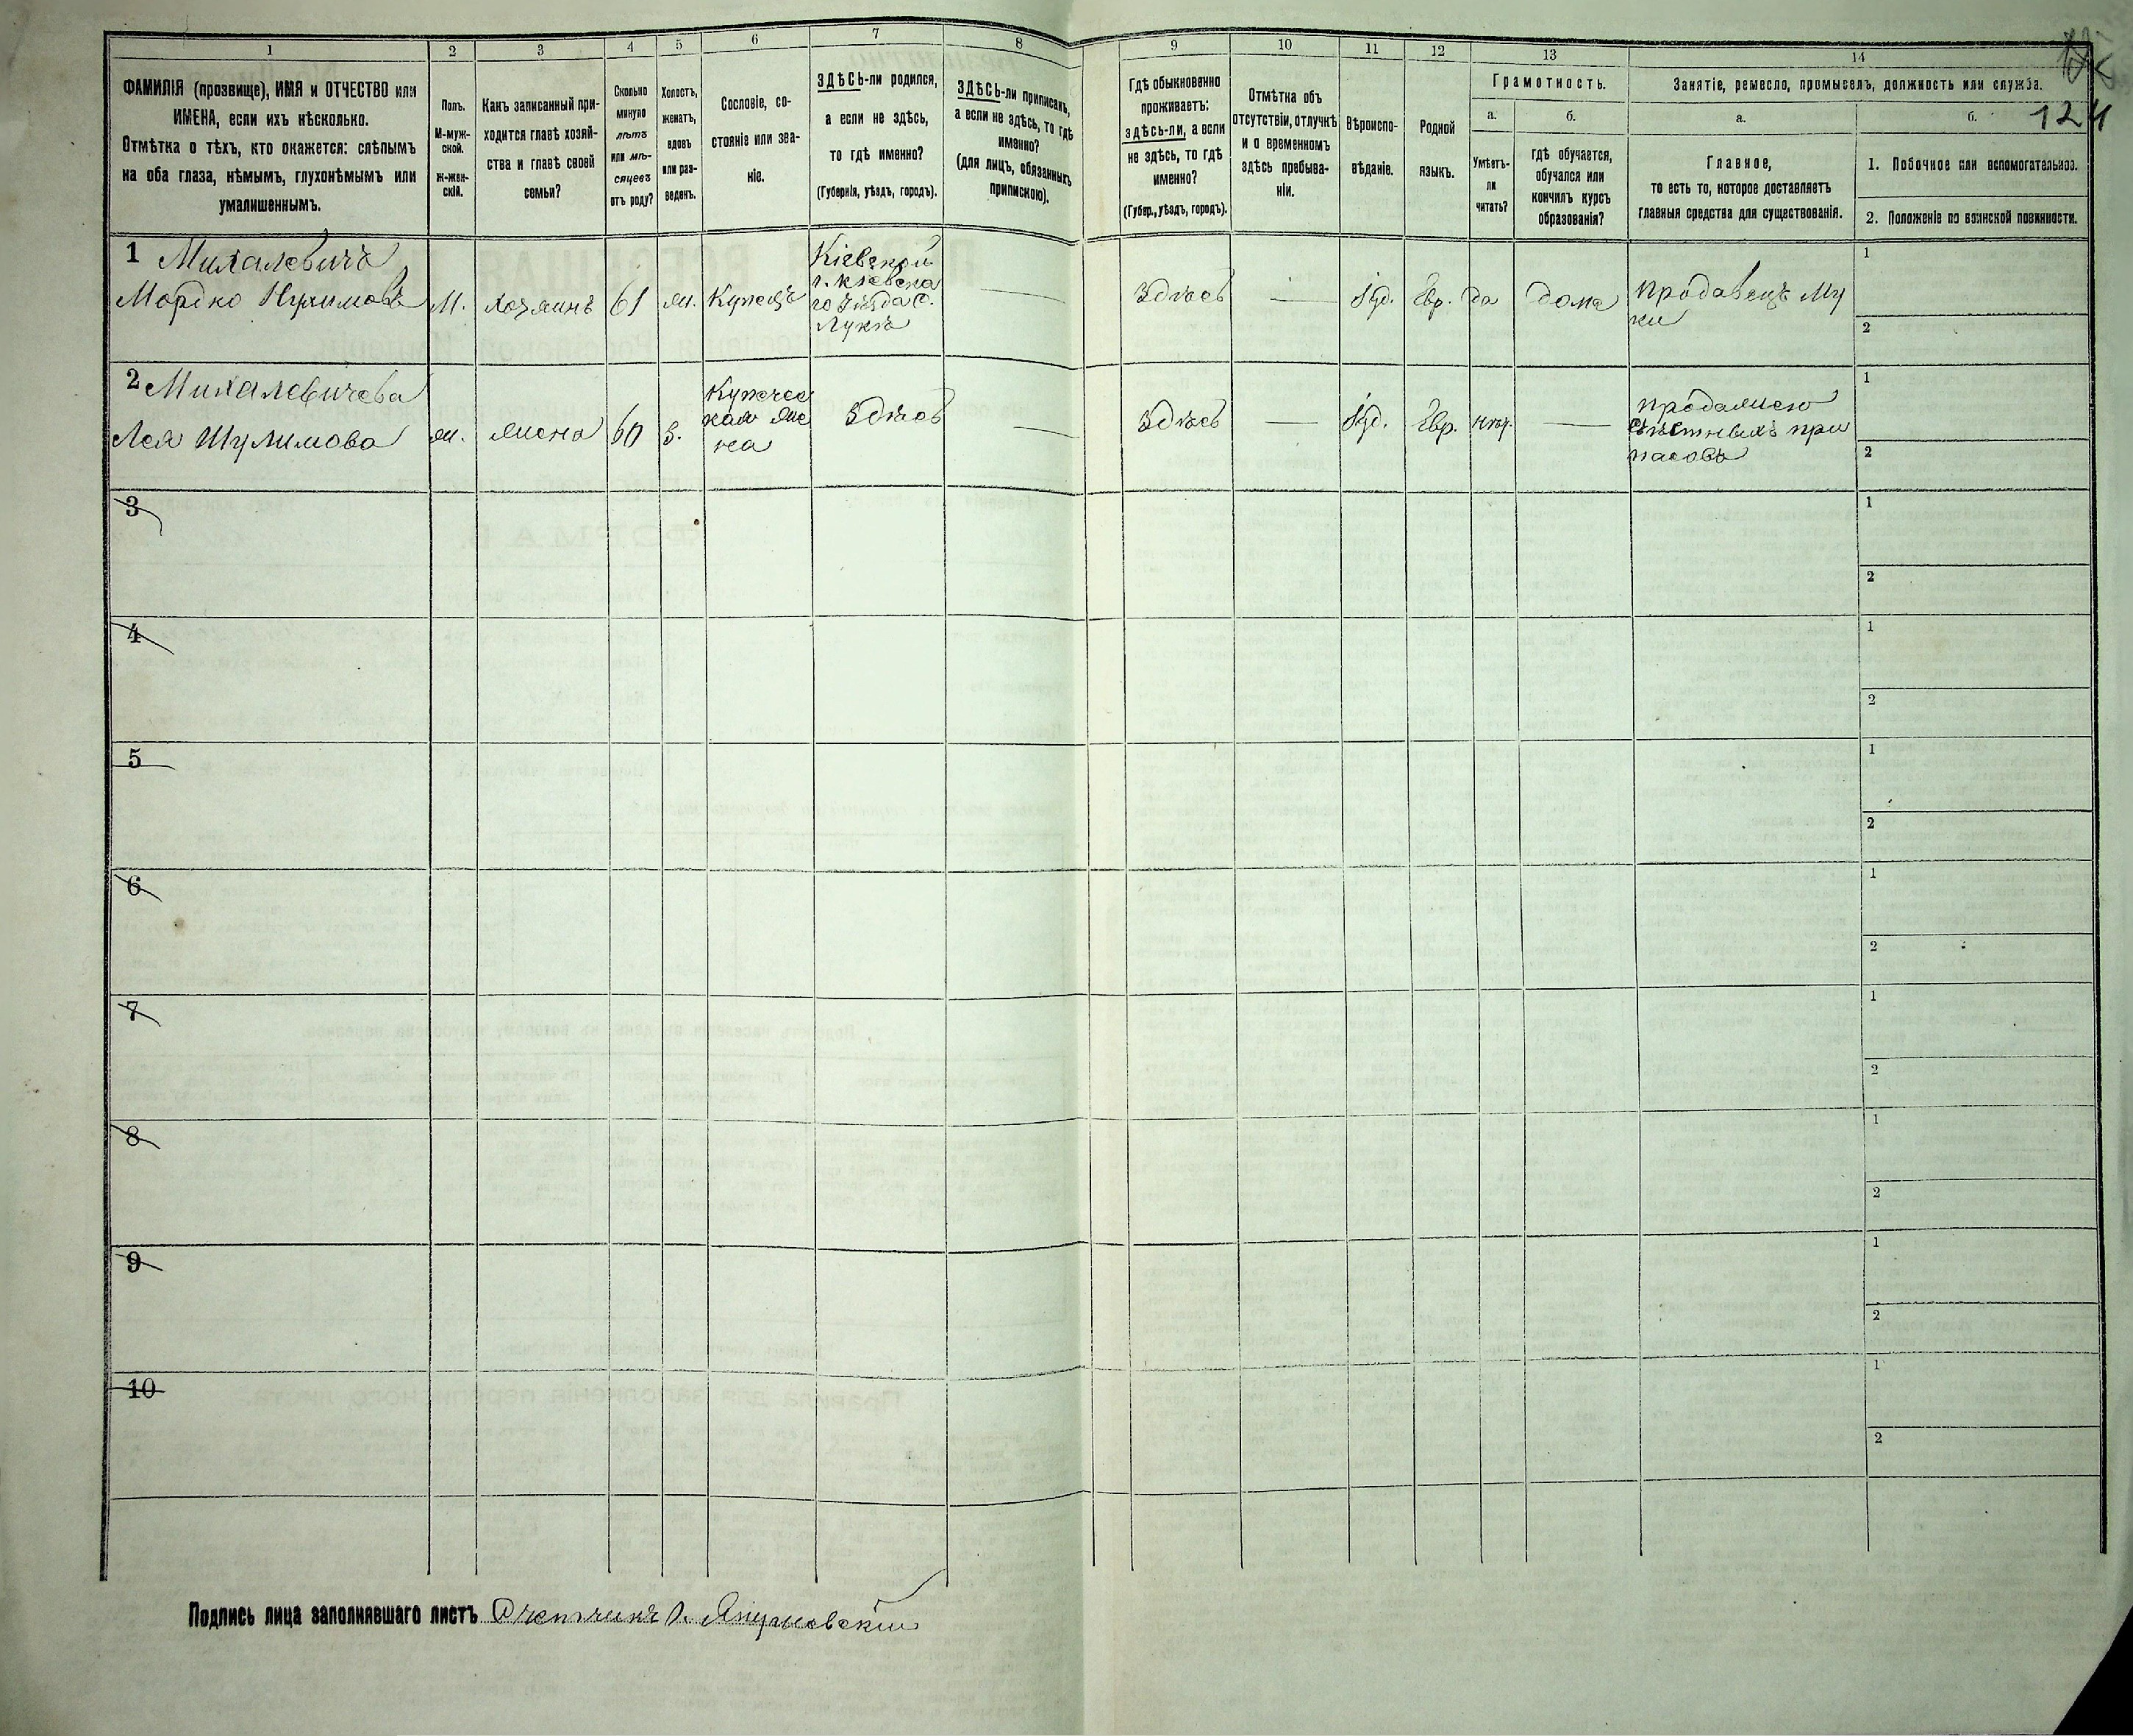 1
2
3
4
5
6
7
8
9
10
11
12
13
14
ФАМИЛІЯ (прозвище), ИМЯ и ОТЧЕСТВО или
ИМЕНА, если ихъ нѣсколько.
Отмѣтка о тѣхъ, кто окажется: слѣпымъ
на оба глаза, нѣмымъ, глухонѣмымъ или
умалишеннымъ.
Полъ.
М-муж-
ской.
Ж-жен-
скій.
Какъ записанный при-
ходится главѣ хозяй-
ства и главѣ своей
семьи?
Сколько
минуло
лѣтъ
или мѣ-
сяцевъ
отъ роду?
Холостъ,
женатъ,
вдовъ
или раз-
веденъ.
Сословіе, со-
стояніе или зва-
ніе.
ЗДѢСЬ-ли родился,
а если не здѣсь,
то гдѣ именно?
(Губернія, уѣздъ, городъ).
ЗДѢСЬ-ли приписанъ,
а если не здѣсь, то гдѣ
именно?
(для лицъ, обязанныхъ
припискою).
Гдѣ обыкновенно
проживаетъ:
здѣсь-ли, а если
не здѣсь, то гдѣ
именно?
(Губер., уѣздъ, городъ).
Отмѣтка объ
отсутствіи, отлучкѣ
и о временномъ
здѣсь пребыва-
ніи.
Вѣроиспо-
вѣданіе.
Родной
языкъ.
Грамотность.
а.
Умѣетъ-
ли
читать?
б.
гдѣ обучается,
обучался или
кончилъ курсъ
образованія?
Занятіе, ремесло, промыселъ, должность или служба.
а.
Главное,
то есть то, которое доставляетъ
главныя средства для существованія.
б.
124
1. Побочное или вспомогательное.
2. Положеніе по воинской повинности.
1 Михалевичъ
Мордко Нухимовъ
М.
хозяинъ
61
ж.
Купецъ
Кіевской
г. Кіевска
го уѣзда С.
Лука
—
Здѣсь
—
Іуд.
Евр.
да
дома
продавецъ му
ки
1
2
2 Михалевичева
Лея Шулимова
ж.
жена
60
З.
Купечес
кая же
на
Здѣсь
—
Здѣсь
—
Іуд.
Евр.
нѣт.
—
продажею
съѣстныхъ при
пасовъ
1
2
3
1
2
4
1
2
5
1
2
6
1
2
7
1
2
8
1
2
9
1
2
10
1
2
Подпись лица заполнявшаго листъ Счетчикъ